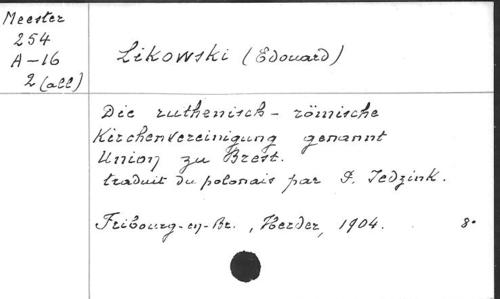 Meester
254
A-16
2 (all)
Likowski (Edouard)
Die ruthenisch-römische
Kirchenvereinigung genannt
Union zu Brest.
traduit du polonais par P. Jedzink.
Fribourg-en-Br., Herder, 1904. 8°